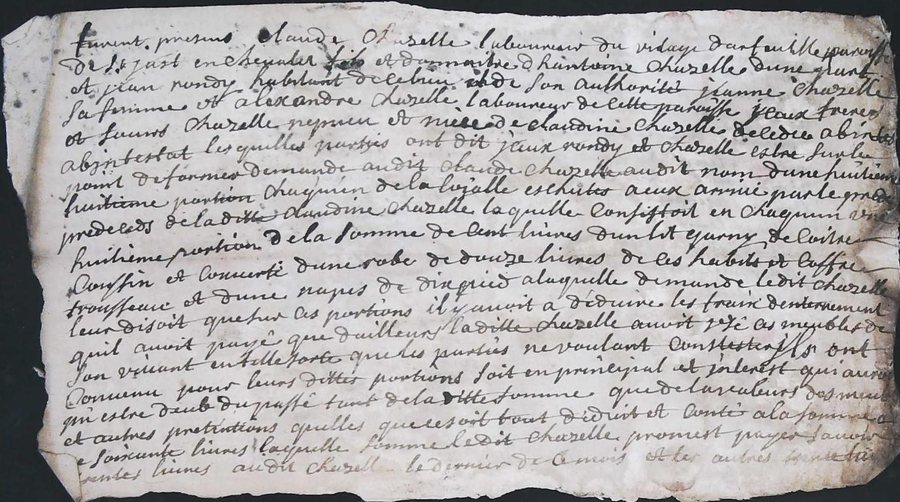 furent presens claude Chazelle laboureur du vilage darfeuille paroisse
de St just en chevalet fils et donnaitre dhantoine chazelle dune part
et jean rondy habitant de ce lieu et de son authorité jeanne chazelle
sa femme et alexandre chazelle laboureur de cette paroisse jceux freres
et sœurs chazelle nepueu et niece de claudine chazelle decedée abintes
abintestat lesquelles parties ont dit jceux rondy et chazelle estre sur le
point de former demande audit claude chazelle audit nom dune huitieme
huitieme portion chaquun de la lojalle escheutes a eux arrivé par le prede
predeceds de laditte claudine chazelle laquelle consistoit en chaquun une
huitieme portion de la somme de cent livres dun lit garny de coitre
coussin et couverte dune robe de douze livres de ces habits et coffre
trousseau et dune napes de dix pied a laquelle demande ledit chazelle
leur disoit que sur ces portions il y auoit a déduire les fraix denterrement
quil auoit payé que dailleurs laditte chazelle auoit usé ces meubles de
son viuant en telle sorte que les parties ne voulant contester ils ont
convenu pour leurs dittes portions soit en principal et jnterest qui auroi
qui estre deub du passé tant de laditte somme que de la valeur des meub
et autres pretentions quelles que ce soit tout déduit et conté a la somme
de soixante livres laquelle somme ledit chazelle promest payer sauoir
trente livres audit chazelle le dernier de ce mois et les autres trente